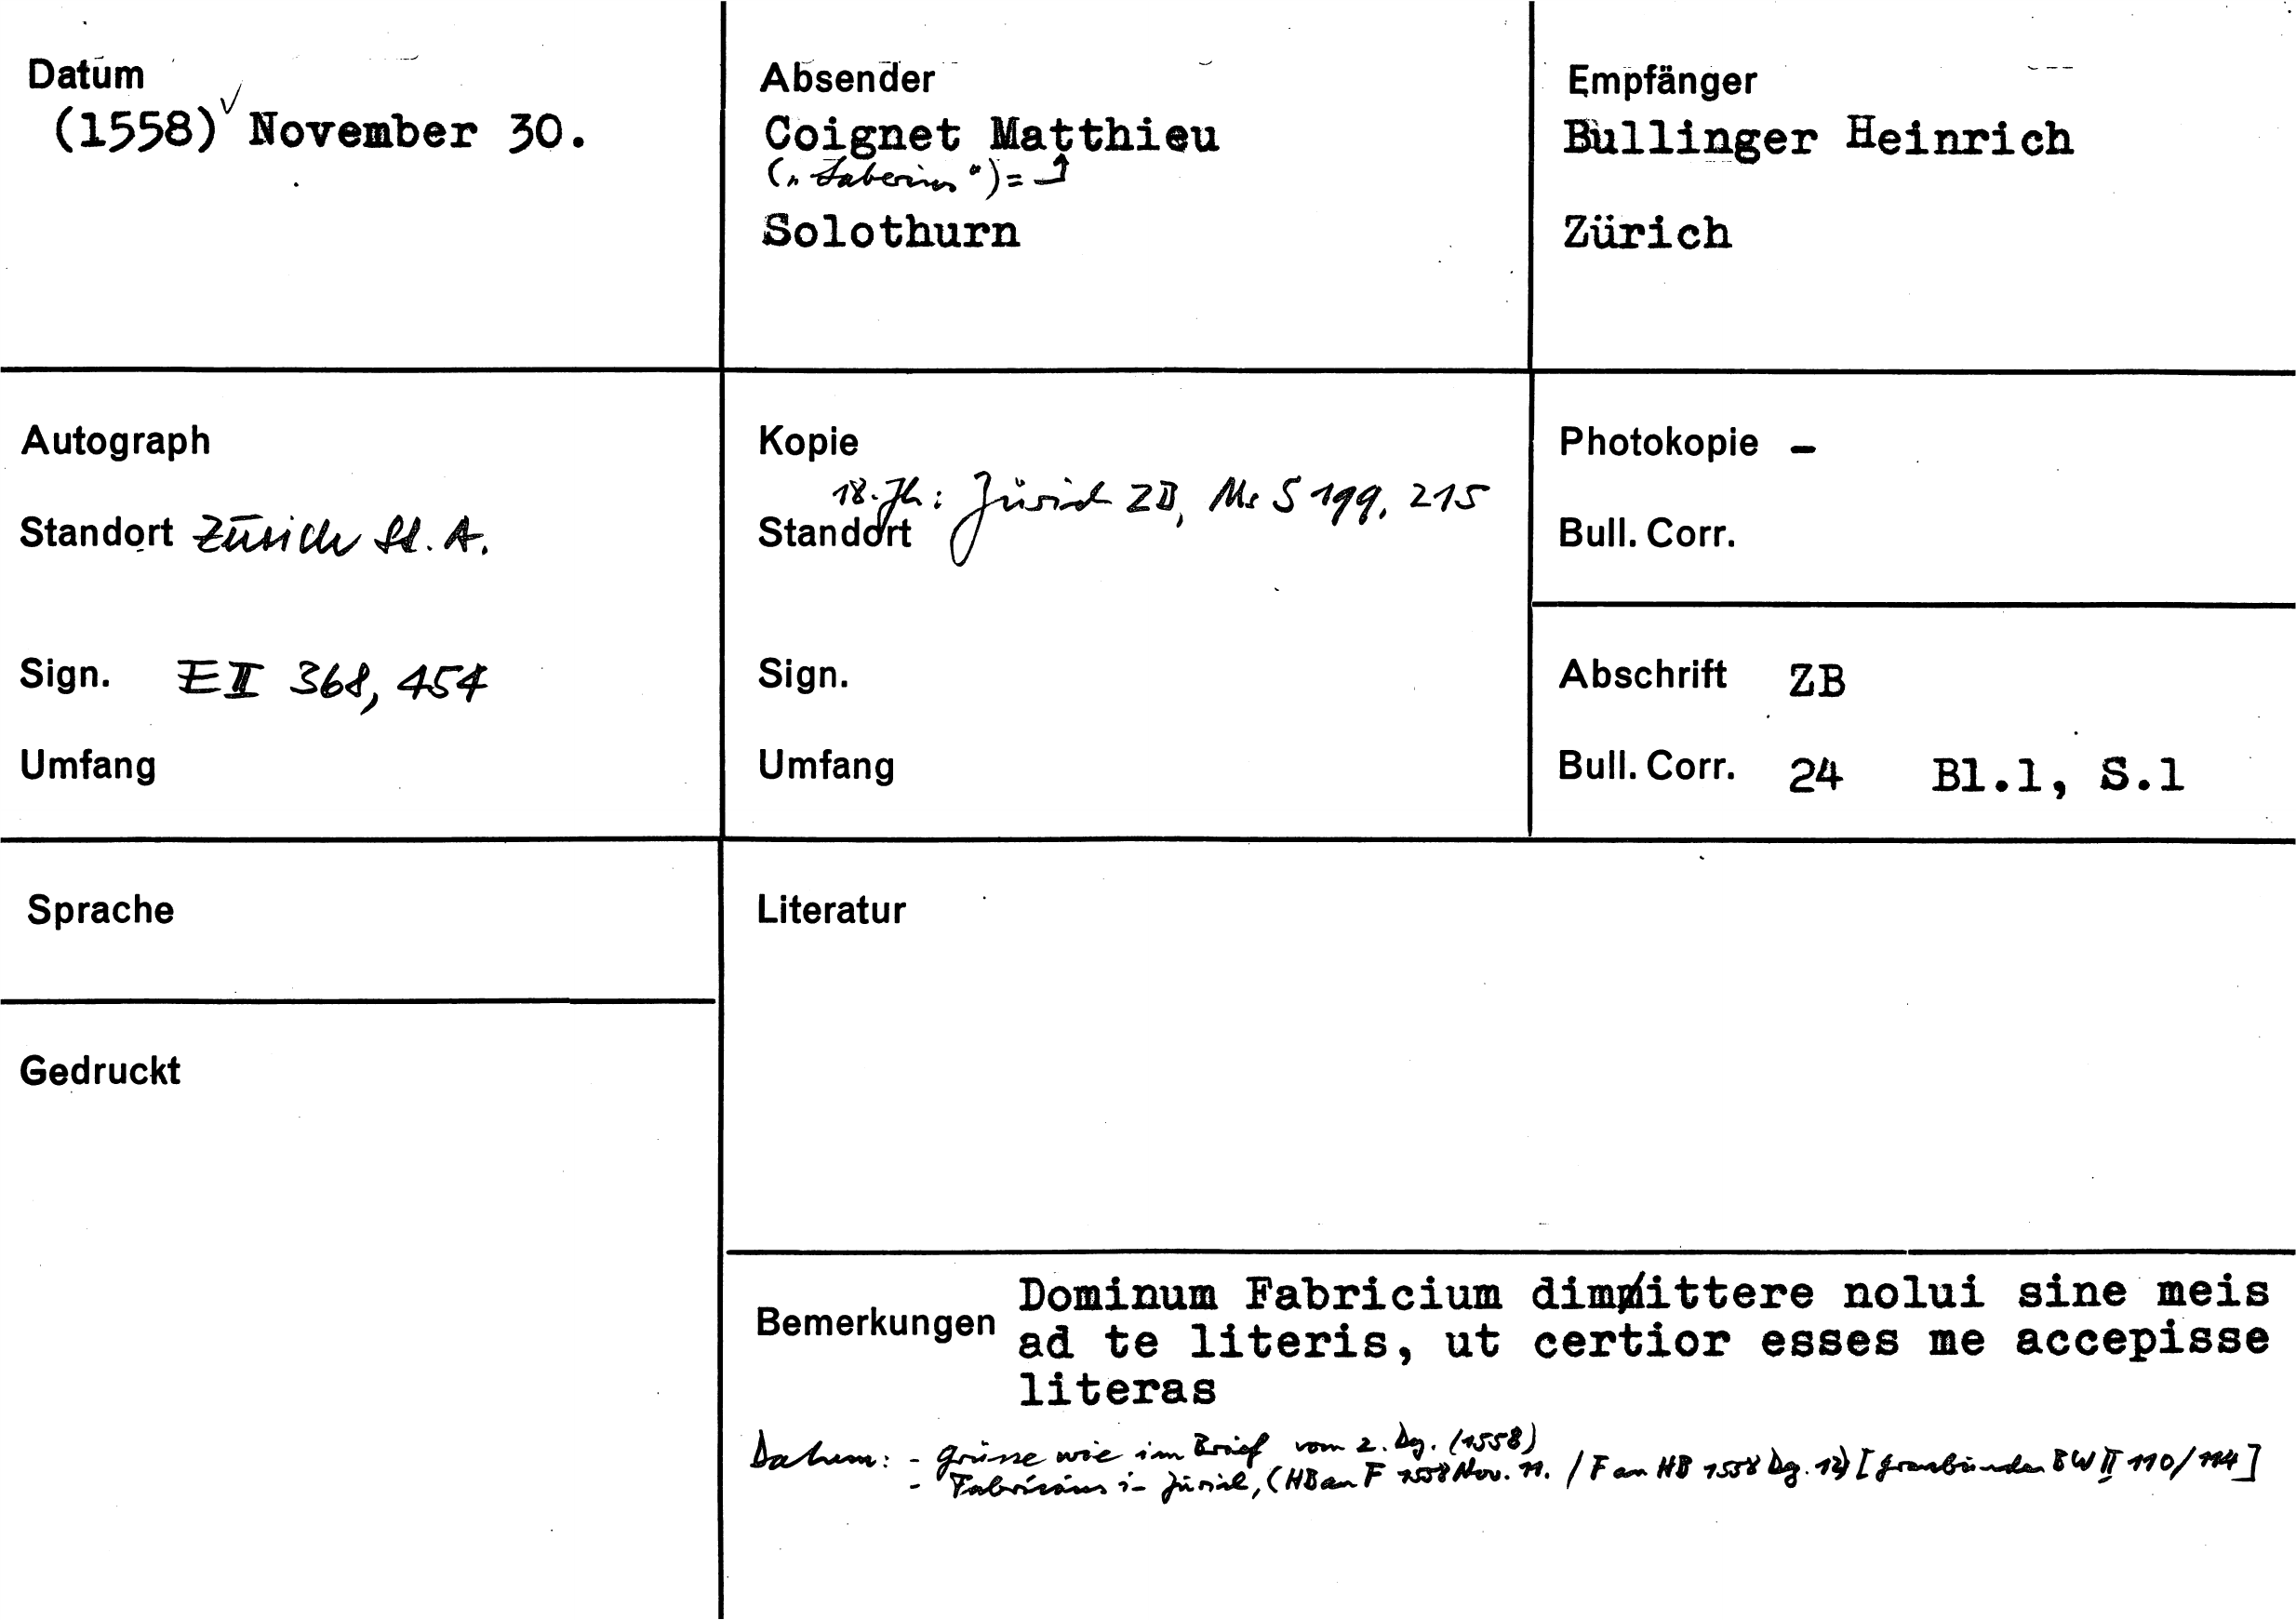 Datum
(1558) ✓ November 30.
Absender
Coignet Matthieu
(„Saberius“) =
Solothurn
Empfänger
Bullinger Heinrich
Zürich
Autograph
Standort Zürich St. A.
Sign. E II 368, 454
Umfang
Kopie
18. Jh: Zürich ZB, Ms S 199, 215
Standort
Sign.
Umfang
Photokopie -
Bull. Corr.
Abschrift ZB
Bull. Corr. 24 Bl.1, S.1
Sprache
Gedruckt
Literatur
Bemerkungen
Dominum Fabricium dimittere nolui sine meis
ad te literis, ut certior esses me accepisse
literas
Datum: - Grüsse wie im Brief vom 2. Dez. (1558)
- Fabricius in Zürich, (HB an F 1558 Nov. 11. / F an HB 1558 Dez. 12) [Graubünden BW II 110/114]